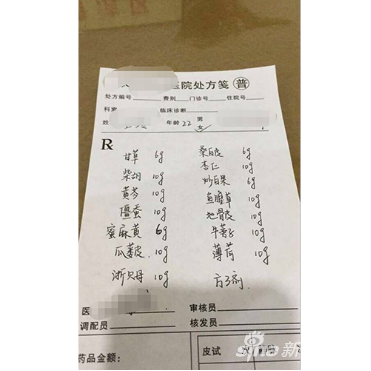 医院处方笺 普
处方编号 费别 门诊号 住院号
科室 临床诊断
姓 年龄 22 男
女
R
甘草 6g 桑白皮 6g
柴胡 10g 杏仁 10g
黄芩 10g 炒白果 6g
僵蚕 10g 鱼腥草 10g
蜜麻黄 6g 地骨皮 10g
瓜蒌皮 10g 牛蒡子 10g
浙贝母 10g 薄荷 10g
方3剂
医
审核员
调配员 核发员
药品金额: 皮试
sina 新